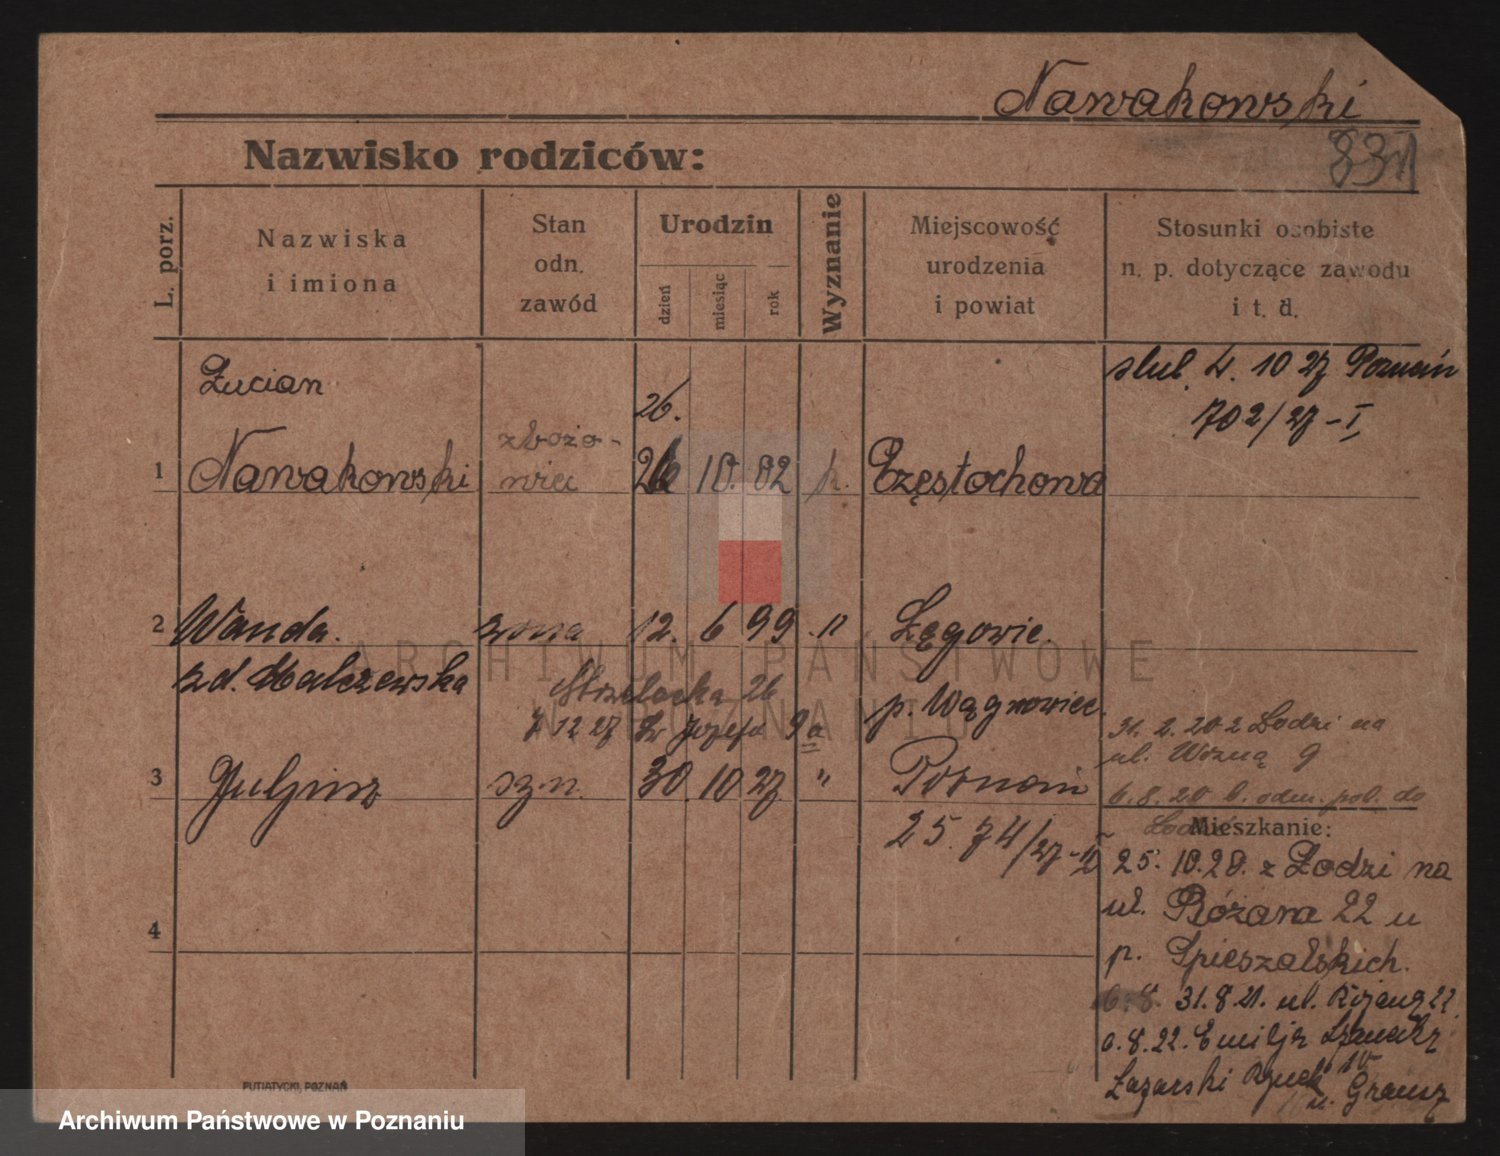 Nawakowski
Nazwisko rodziców:
L. porz.
Nazwiska
i imiona
Stan
odn.
zawód
Urodzin
dzień
miesiąc
rok
Wyznanie
Miejscowość
urodzenia
i powiat
Stosunki osobiste
n. p. dotyczące zawodu
i t. d.
Lucian
26.
ślub. 4. 10 27 Poznań
702/27-I
zbożo-
1 Nawakowski wiec 26 10. 02 k. Częstochowa
2 Wanda. żona 12. 6 99 " Łęgowie.
zd. Malczewska
Strzelecka 26
p. Wągrowiec.
12 27 św Józefa 9a
31. 2. 20 z Łodzi na
ul. Woźną 9
3 Juljusz syn. 30. 10 27 " Poznań
6.8.20 odm. pob. do
Mieszkanie:
25. 74/27-II
25. 10.20. z Łodzi na
ul. Różana 22 u
4
p. Spieszalskich.
31.8 21. ul. Różana 22
8.22. Emilja
Łazarski Rynek 10
u.
PUTIATYCKI, POZNAŃ
ARCHIWUM PAŃSTWOWE
W POZNANIU
Archiwum Państwowe w Poznaniu